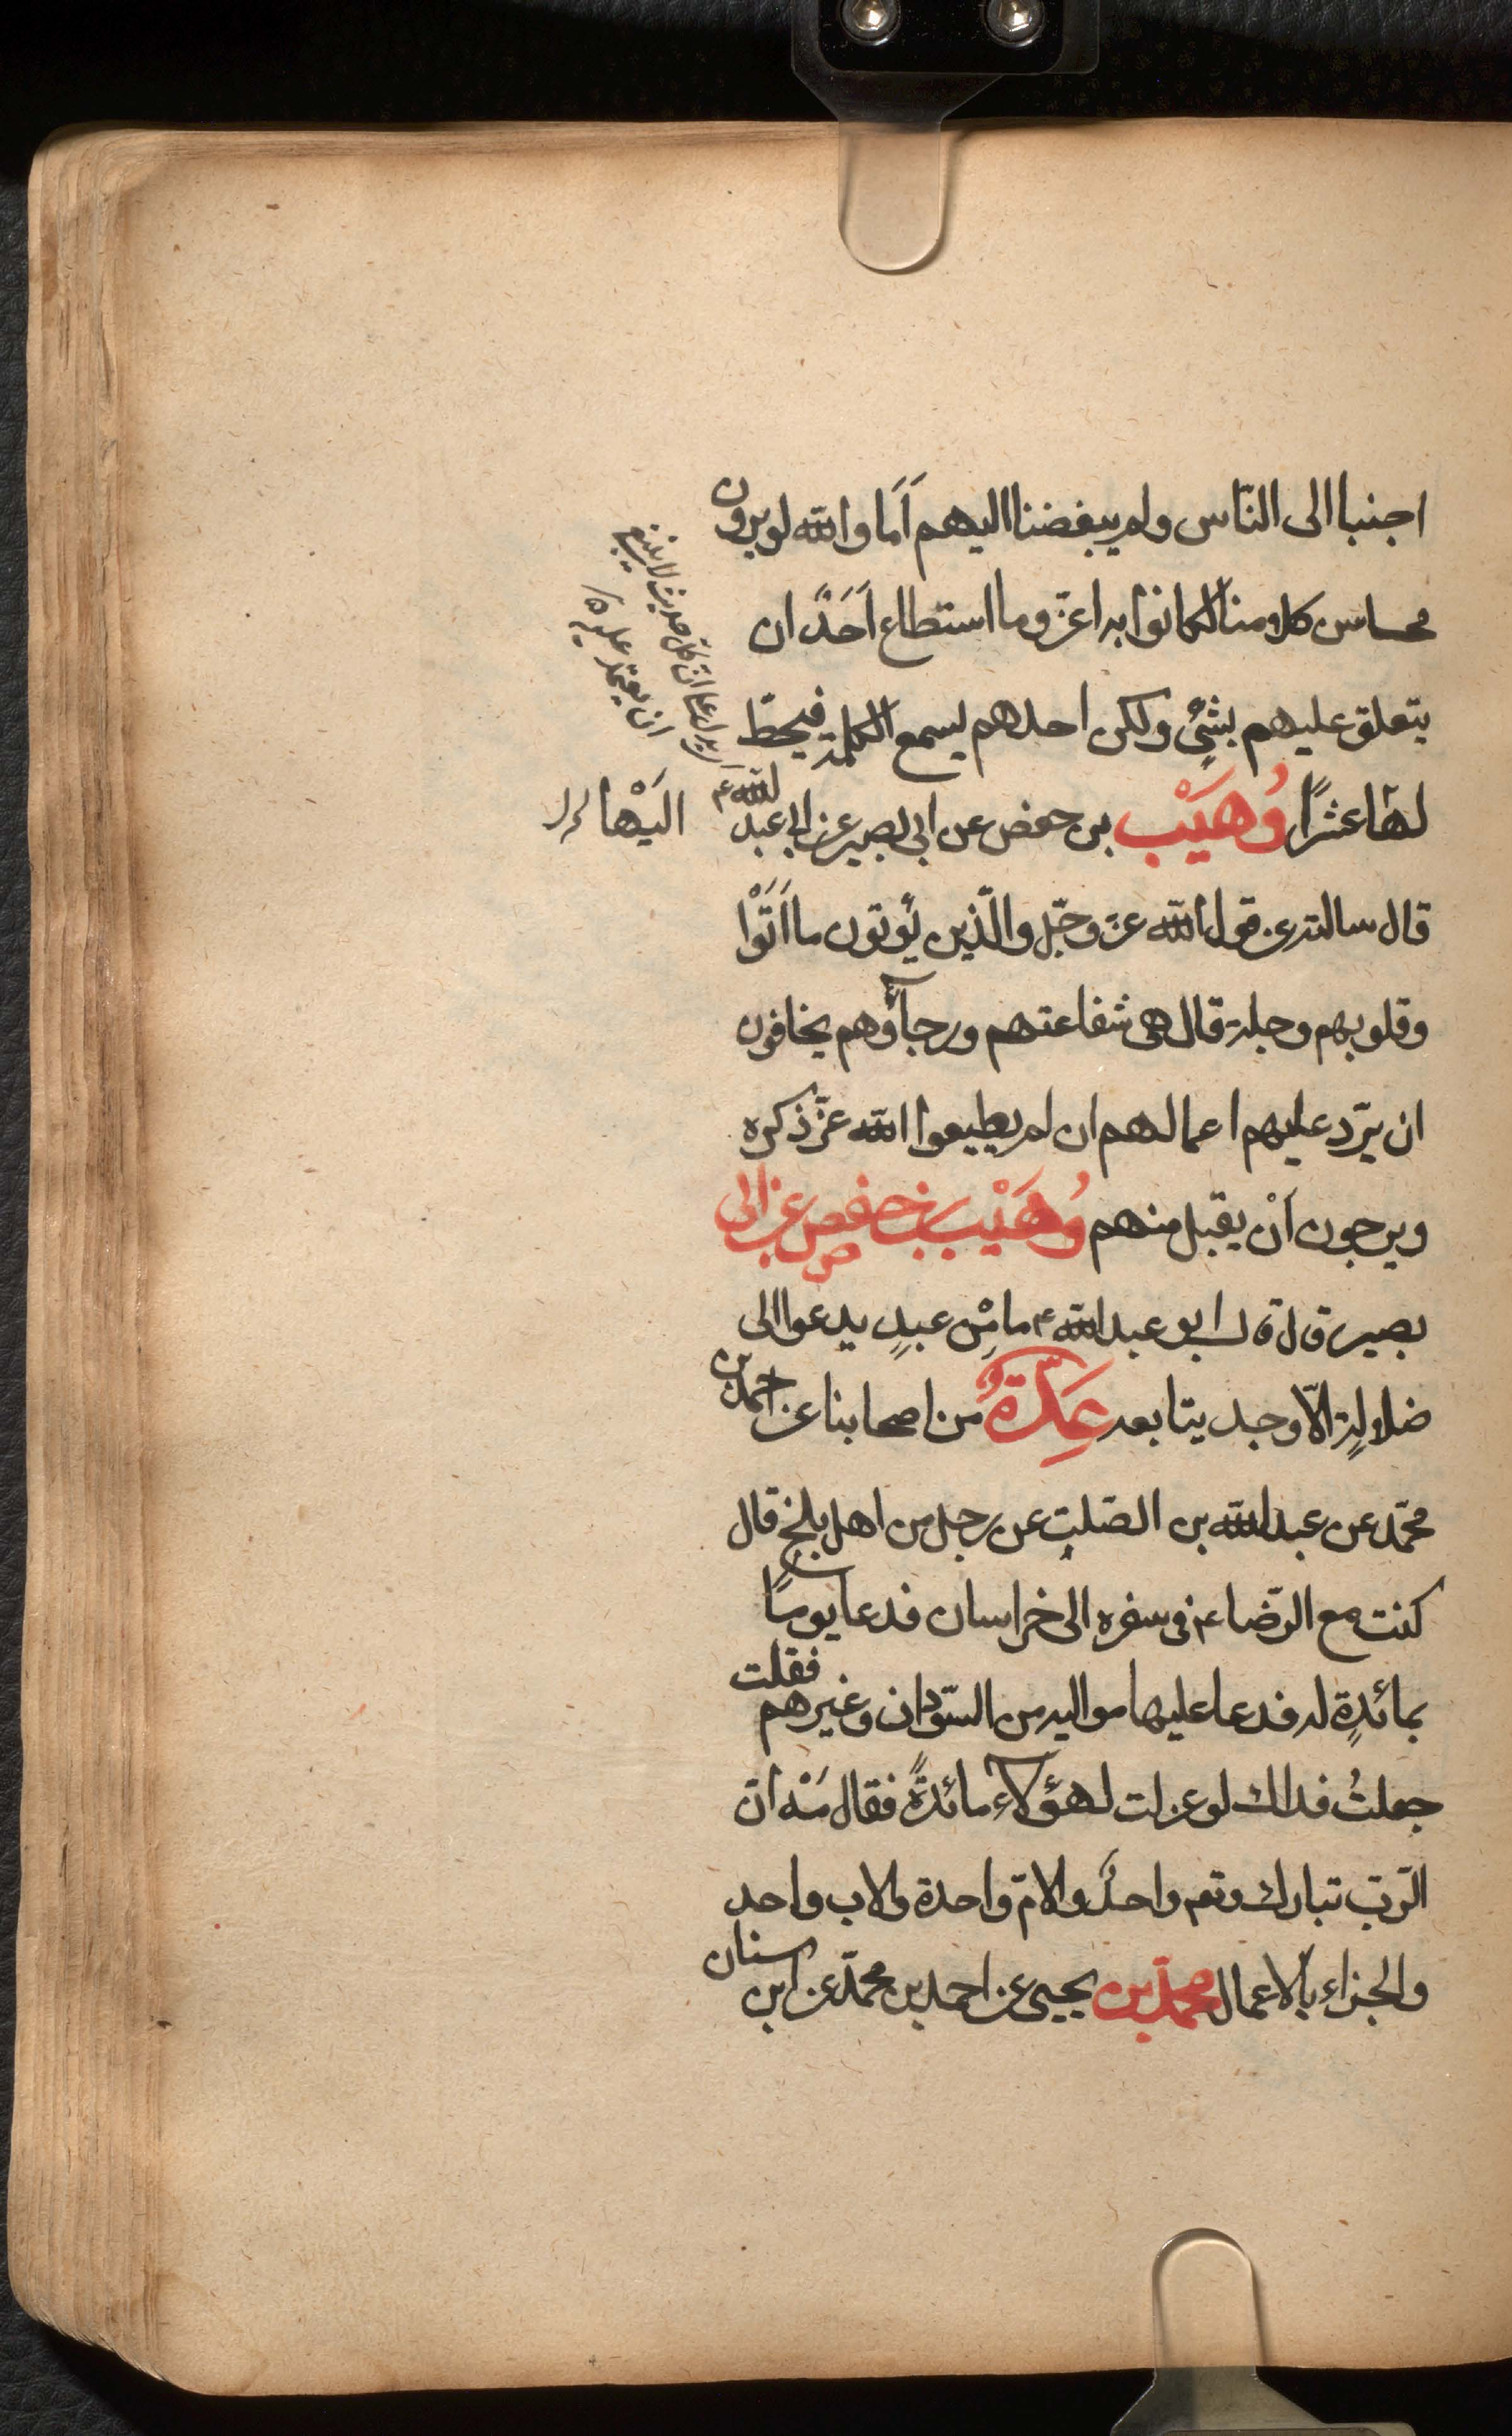 اجنبا الى النّاس ولم يبغضنا اليهم اَمَا والله لو يرون
محاسن كلامنا لكانوا به اعزّ وما استطاع اَحَدٌ ان
يتعلق عليهم بشئٍ ولكن احدهم يسمع الكلمة فيحطّ
لها عشرًا وُهَيْب بن حفص عن ابى بصير عن ابى عبد الله ع
قال سالته عن قول الله عزّ وجلّ والّذين يُوتون ما اَتَوْا
وقلوبهم وجلة قال هى شفاعتهم ورجاؤهم يخافون
ان يردّ عليهم اعمالهم ان لم يطيعوا الله عزّ ذكره
ويرجون اَنْ يقبل منهم وُهَيْب بن حفص عن ابى
بصير قال قال ابو عبد الله ع ما مِن عبدٍ يدعوا الى
ضلالةٍ الّا وجد يتابعه عِدّةٌ من اصحابنا عن احمد بن
محمّد عن عبد الله بن الصّلت عن رجل من اهل بلخ قال
كنت مع الرّضا ع فى سفره الى خراسان فدعا يومًا
بمائدةٍ له فدعا عليها مواليه من السّودان وغيرهم فقلت
جعلتُ فداك لو عزلت لهؤلاء مائدةً فقال مَهْ انّ
الرّبّ تبارك وتعم واحدٌ والامّ واحدة والاب واحد
والجزاء بالاعمال محمّد بن يحيى عن احمد بن محمّد عن ابن سنان
يدل على ان كل حديث لا ينبغى
ان يعتمد عليه
اليْها